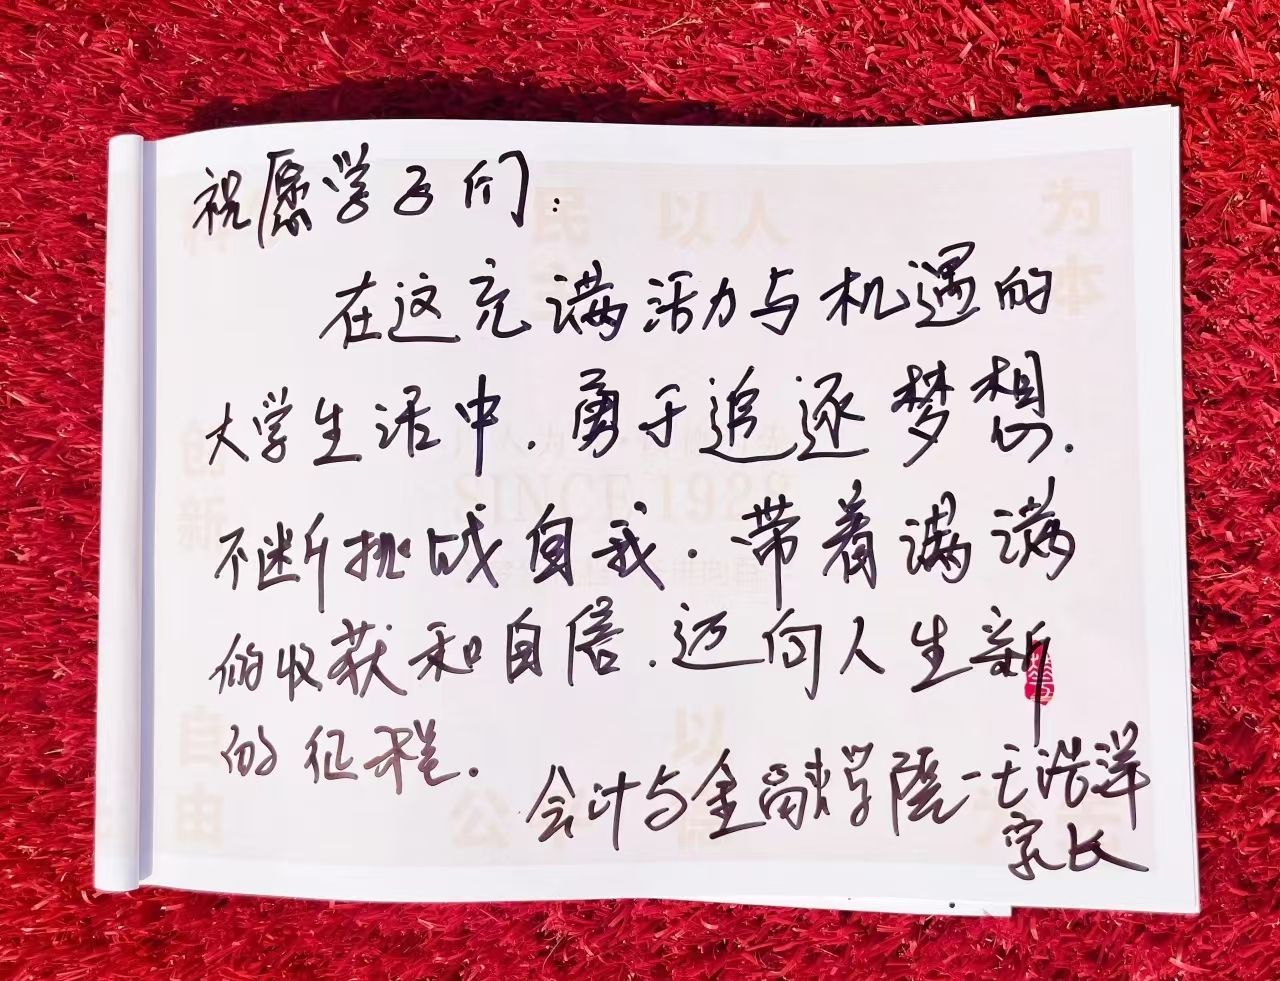 祝愿学子们：
在这充满活力与机遇的
大学生活中，勇于追逐梦想，
不断挑战自我，带着满满
的收获和自信，迈向人生新
的征程。
会计与金融学院—王浩洋
家长
民 以人 为
主 本
创
新
SINCE 1928
自 以
由 公